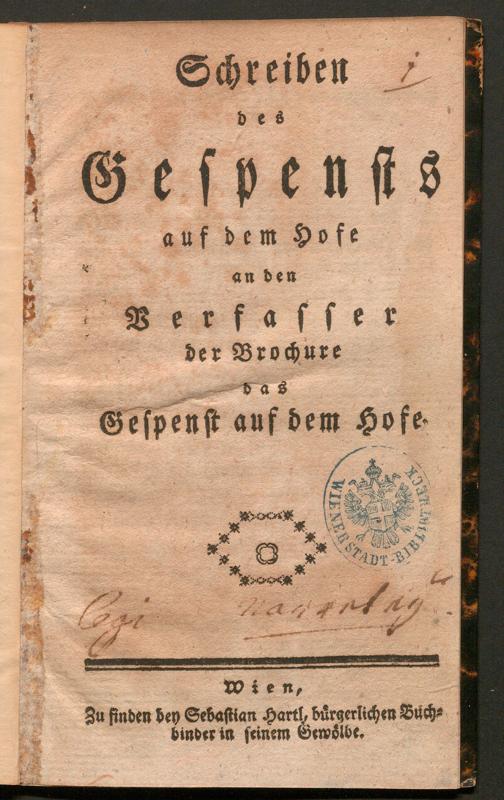 Schreiben
des
Gespensts
auf dem Hofe
an den
Verfasser
der Brochure
das
Gespenst auf dem Hofe.
WIENER STADT-BIBLIOTHECK
Wien,
Zu finden bey Sebastian Hartl, bürgerlichen Buch-
binder in seinem Gewölbe.